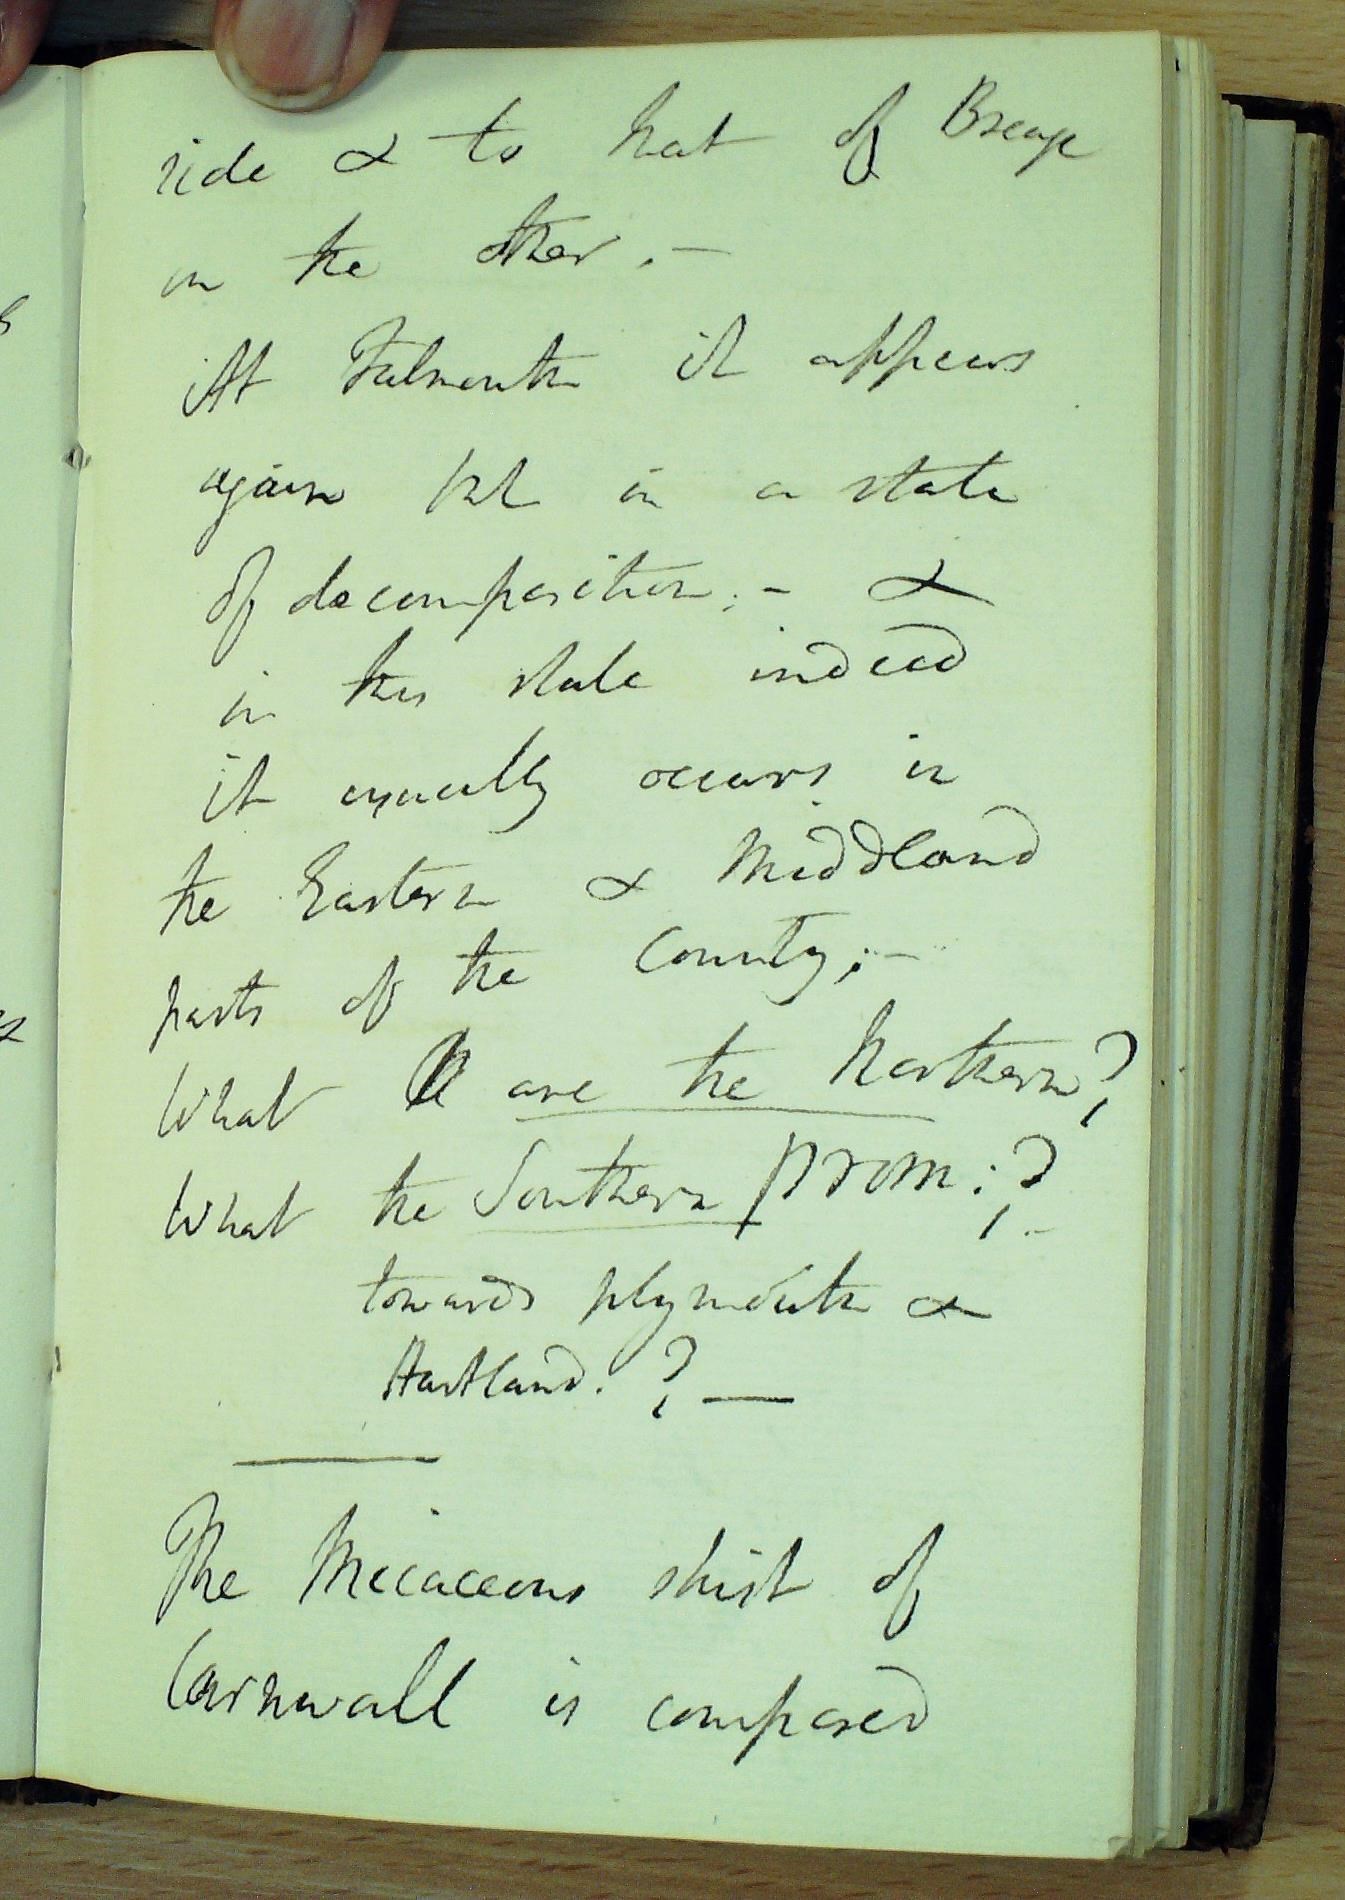 side & to that of Breage
on the other. –
At Falmouth it appears
again but in a state
of decomposition; – &
in this state indeed
it usually occurs in
the Eastern & Middland
parts of the County; –
What are the Northern?
What the Southern prom: ? –
towards plymouth &
Hartland. ? —
The Micaceous shist of
Cornwall is composed